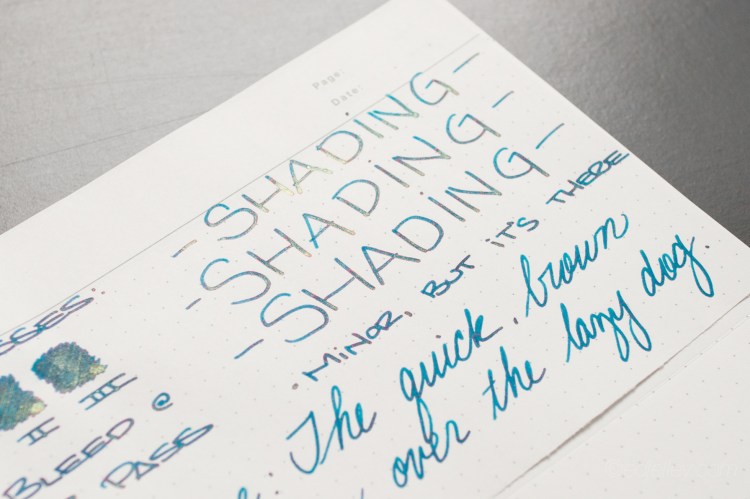 Page
Date
-SHADING-
-SHADING-
-SHADING-
· MINOR, BUT IT'S THERE
The quick, brown
over the lazy dog.
II III
BLEED @
PASS